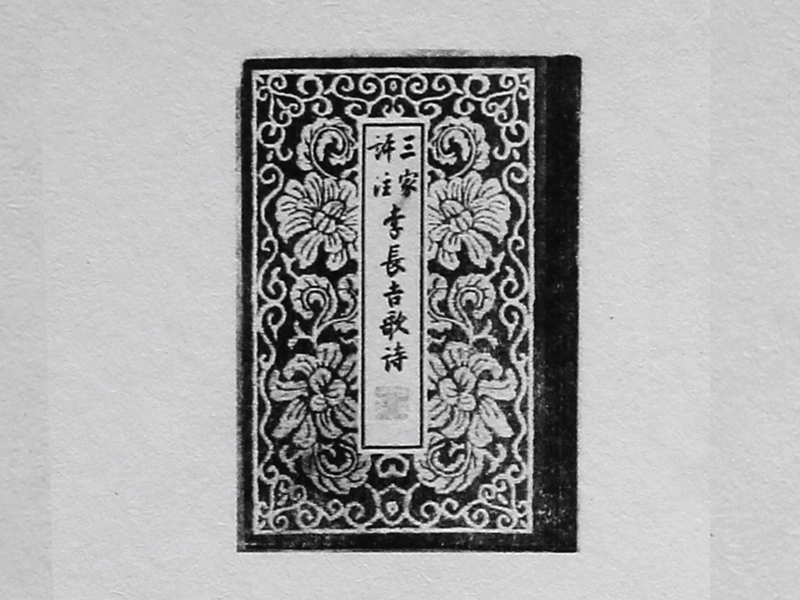 三家
評注
李長吉歌詩